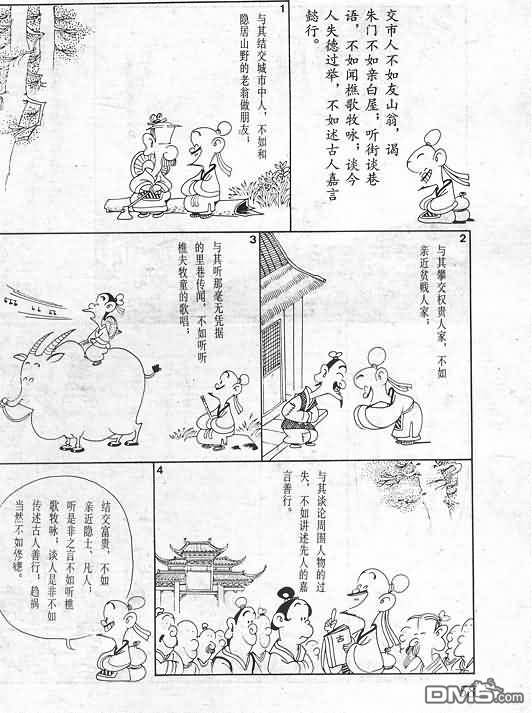 交市人不如友山翁，谒
朱门不如亲白屋；听街谈巷
语，不如闻樵歌牧咏；谈今
人失德过举，不如述古人嘉言
懿行。
1
与其结交城市中人，不如和
隐居山野的老翁做朋友；
2
与其攀交权贵人家，不如
亲近贫贱人家；
3
与其听那毫无凭据
的里巷传闻，不如听听
樵夫牧童的歌唱；
4
与其谈论周围人物的过
失，不如讲述先人的嘉
言善行。
古
结交富贵，不如
亲近隐士、凡人；
听是非之言不如听樵
歌牧咏；谈人是非不如
传述古人善行；趋祸
当然不如修德。
DM5.com